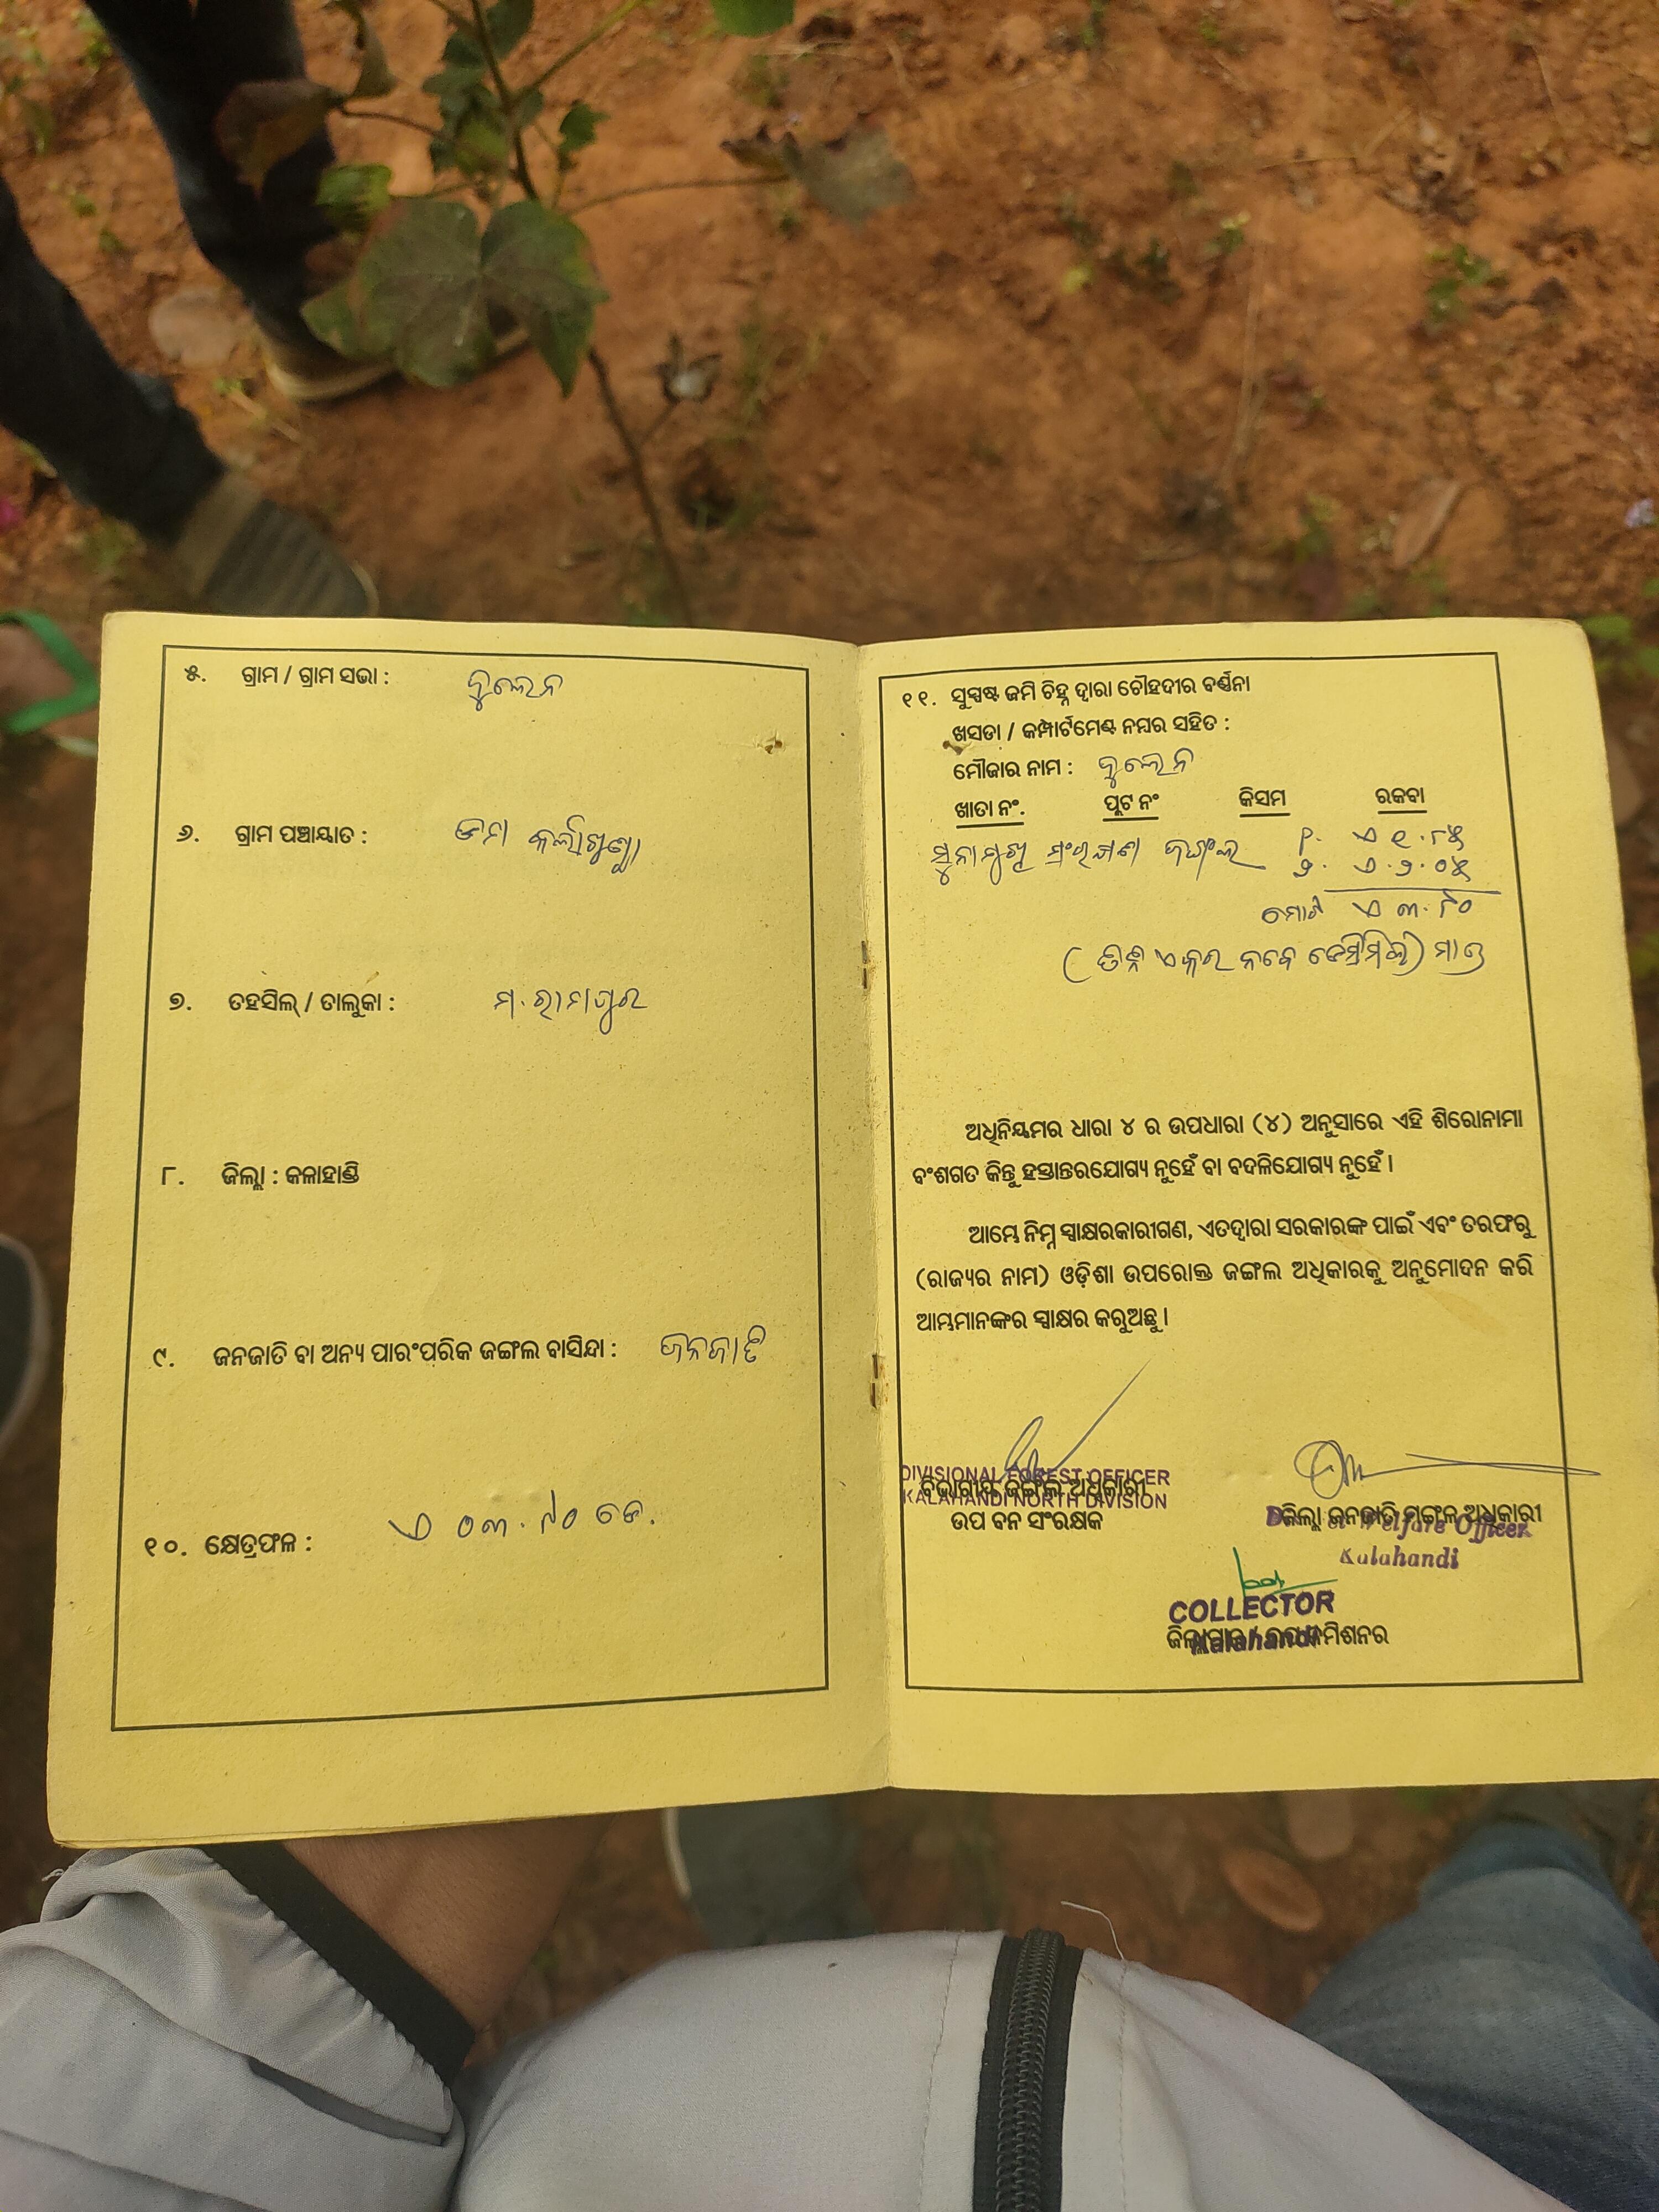 ୫. ଗ୍ରାମ / ଗ୍ରାମ ସଭା :
୬. ଗ୍ରାମ ପଞ୍ଚାୟାତ :
୭. ତହସିଲ୍ / ତାଲୁକା : ମ. ରାମପୁର
୮. ଜିଲ୍ଲା : କଳାହାଣ୍ଡି
୯. ଜନଜାତି ବା ଅନ୍ୟ ପାରଂପରିକ ଜଙ୍ଗଲ ବାସିନ୍ଦା : ଜନଜାତି
୧୦. କ୍ଷେତ୍ରଫଳ : ଏ ୦୩.୯୦ ଡେ.
୧୧. ସୁସ୍ପଷ୍ଟ ଜମି ଚିହ୍ନ ଦ୍ୱାରା ଚୌହଦୀର ବର୍ଣ୍ଣନା
ଖସଡା / କମ୍ପାର୍ଟମେଣ୍ଟ ନମ୍ବର ସହିତ :
ମୌଜାର ନାମ :
ଖାତା ନଂ. ପ୍ଲଟ ନଂ କିସମ ରକବା
ସୁନାମୁଖୀ ସଂରକ୍ଷଣ ଜଙ୍ଗଲ ୧. ଏ ୧.୮୫
୨. ଏ.୨.୦୫
ମୋଟ ଏ ୩.୯୦
(ତିନି ଏକର ନବେ ଡେସିମିଲ୍) ମାତ୍ର
ଅଧିନିୟମର ଧାରା ୪ ର ଉପଧାରା (୪) ଅନୁସାରେ ଏହି ଶିରୋନାମା
ବଂଶଗତ କିନ୍ତୁ ହସ୍ତାନ୍ତରଯୋଗ୍ୟ ନୁହେଁ ବା ବଦଳିଯୋଗ୍ୟ ନୁହେଁ ।
ଆମ୍ଭେ ନିମ୍ନ ସ୍ୱାକ୍ଷରକାରୀଗଣ, ଏତଦ୍ୱାରା ସରକାରଙ୍କ ପାଇଁ ଏବଂ ତରଫରୁ
(ରାଜ୍ୟର ନାମ) ଓଡ଼ିଶା ଉପରୋକ୍ତ ଜଙ୍ଗଲ ଅଧିକାରକୁ ଅନୁମୋଦନ କରି
ଆମ୍ଭମାନଙ୍କର ସ୍ୱାକ୍ଷର କରୁଅଛୁ ।
DIVISIONAL FOREST OFFICER
ବିଭାଗୀୟ ଜଙ୍ଗଲ ଅଧିକାରୀ
KALAHANDI NORTH DIVISION
ଉପ ବନ ସଂରକ୍ଷକ
ଜିଲ୍ଲା ଜନଜାତି ମଙ୍ଗଳ ଅଧିକାରୀ
Welfare Officer
Kalahandi
COLLECTOR
ଜିଲ୍ଲାପାଳ / ଉପ କମିଶନର
Kalahandi